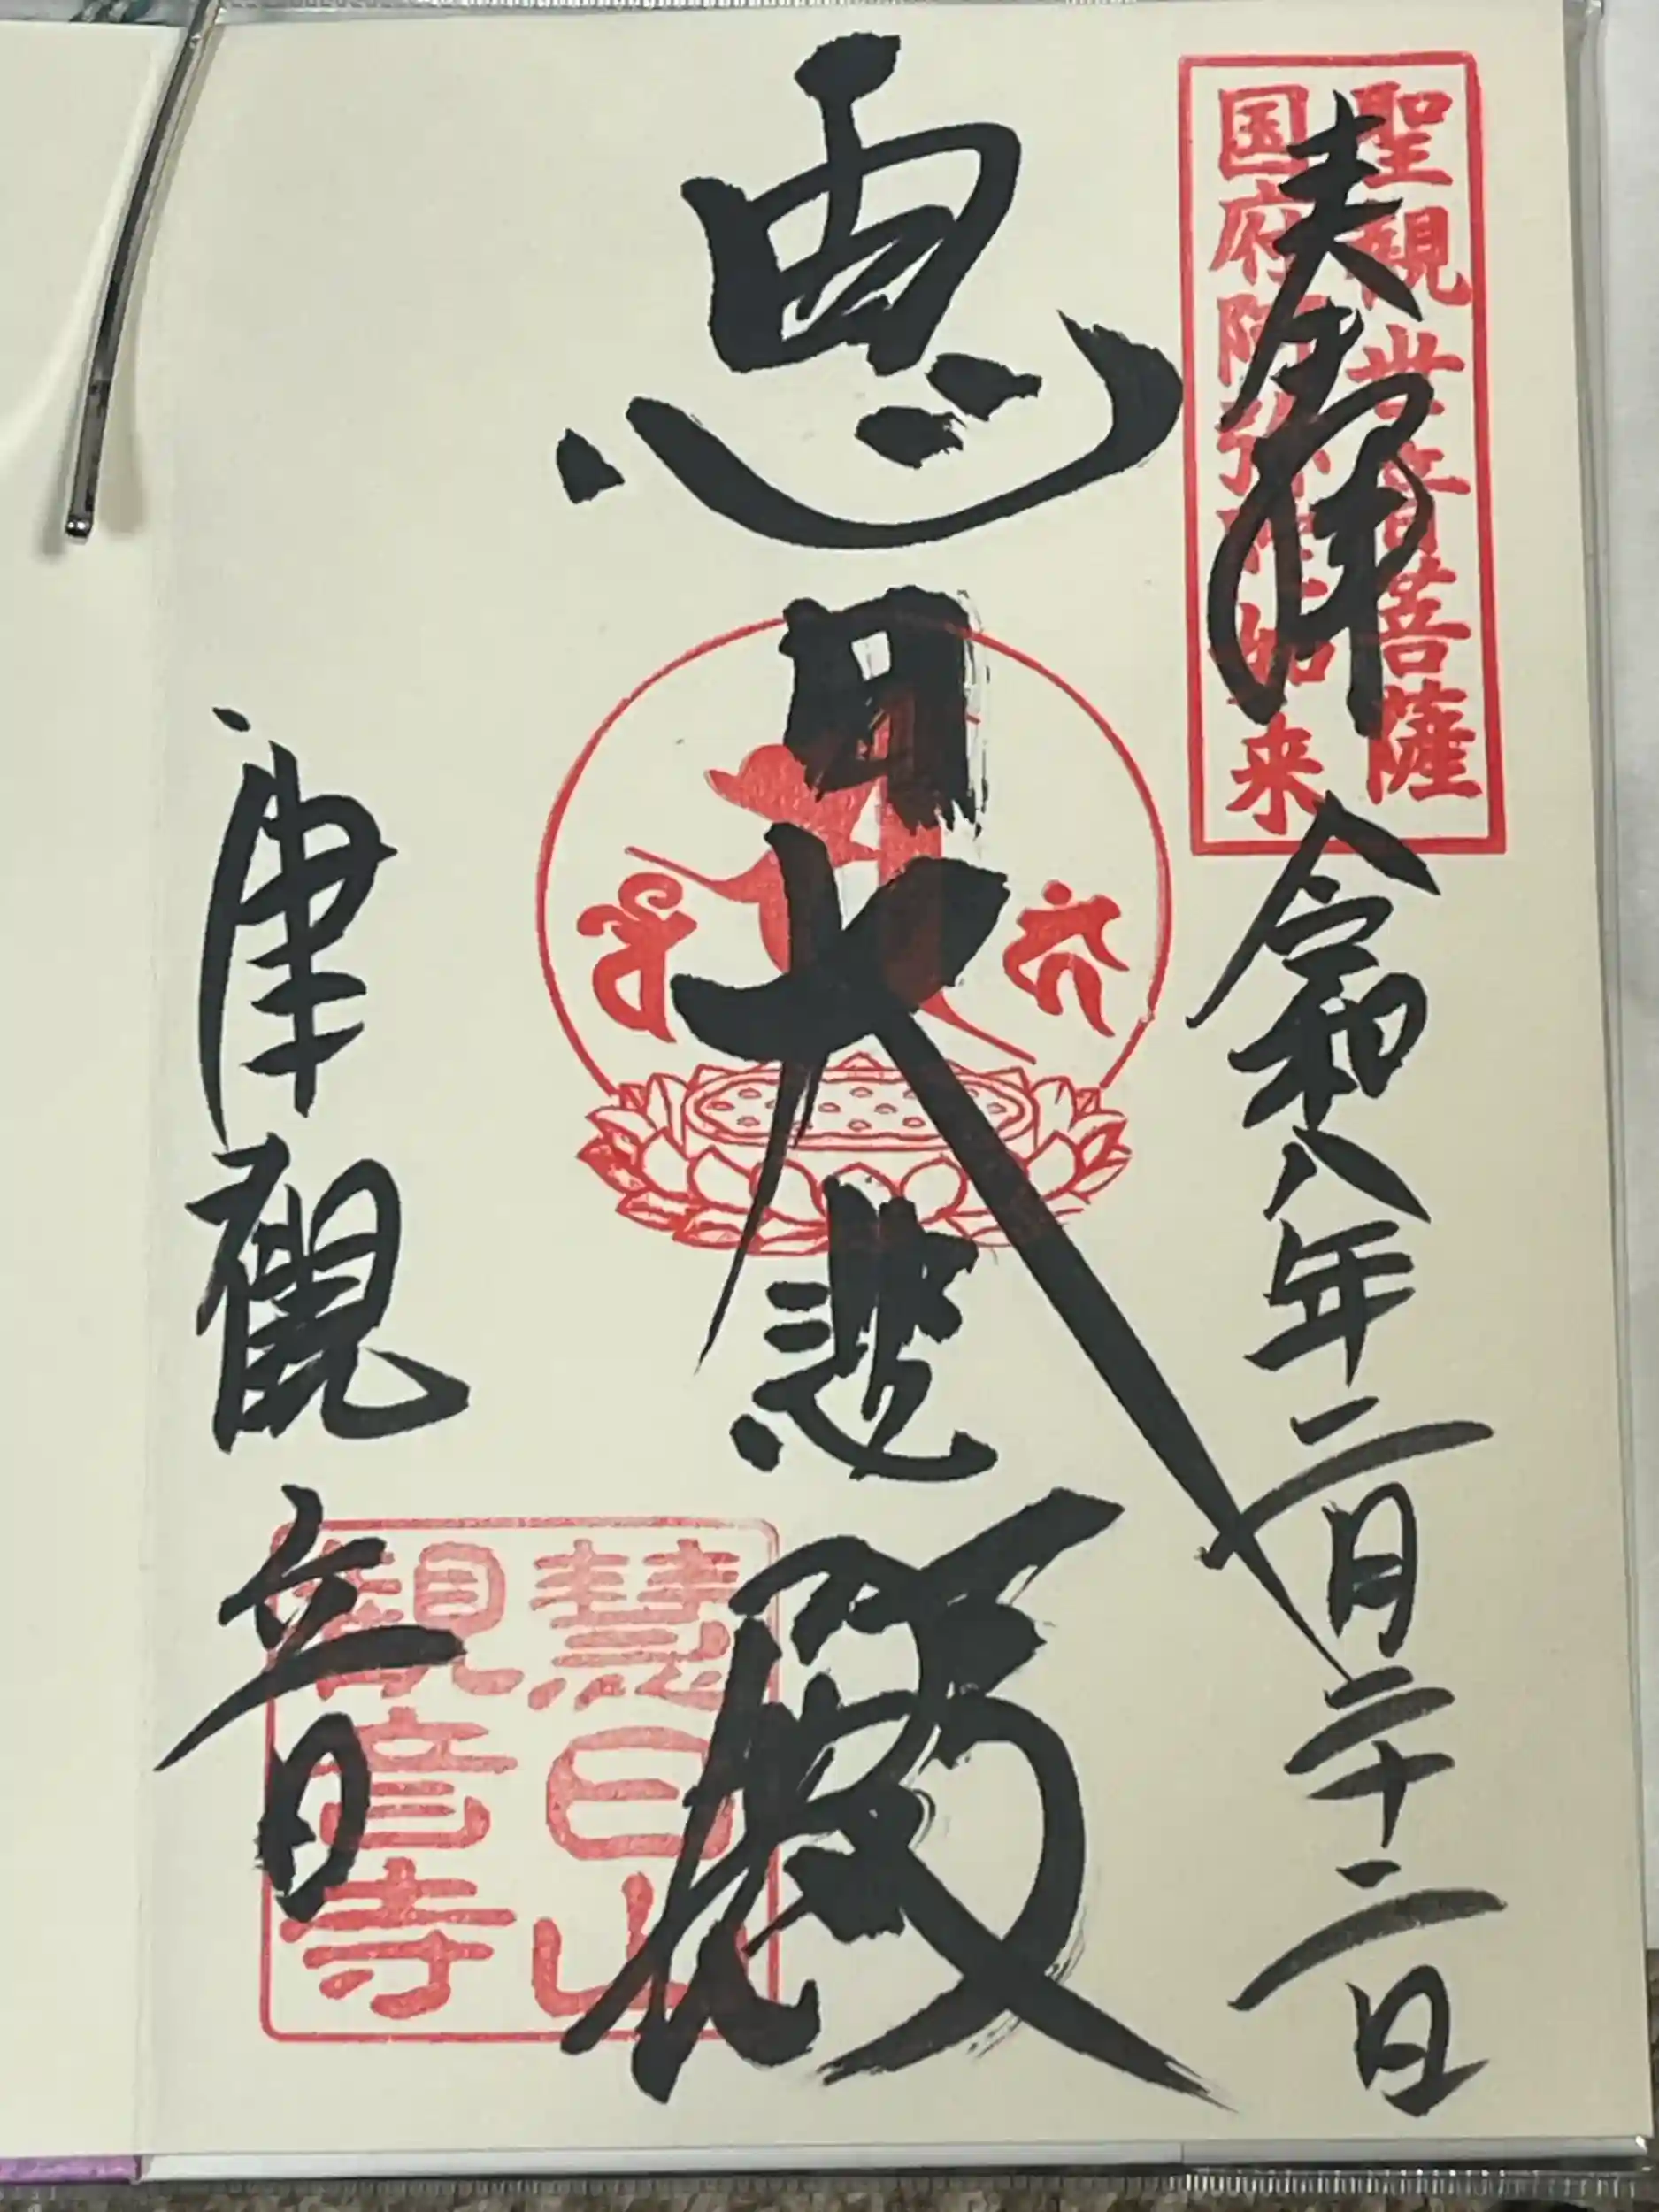 聖観世音菩薩
国府阿弥陀如来
奉拝 令和八年二月二十二日
恵日大悲殿
慧日山
観音寺
津觀音